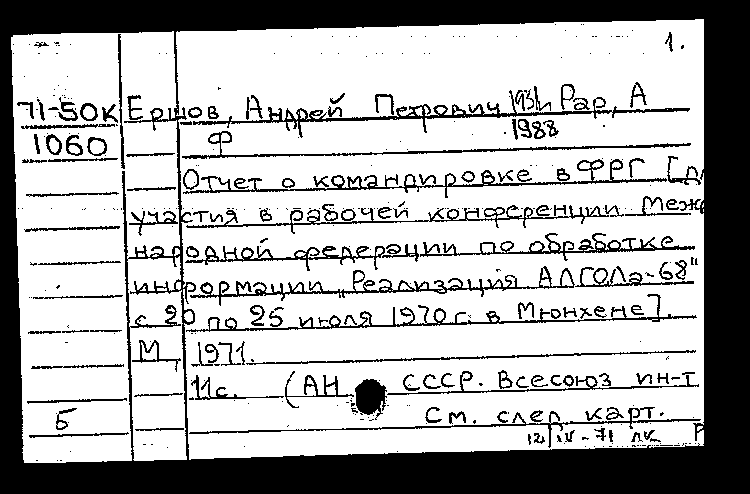 1.
71-50К Ершов, Андрей Петрович 1931 и Рар, А
1060 Ф 1988
Отчет о командировке в ФРГ [дл
участия в рабочей конференции Меж
народной федерации по обработке
информации „Реализация АЛГОЛа-68"
с 20 по 25 июля 1970 г. в Мюнхене].
М, 1971.
11 с. (АН СССР. Всесоюз ин-т
Б См. след. карт.
12/IV-71 лк Р